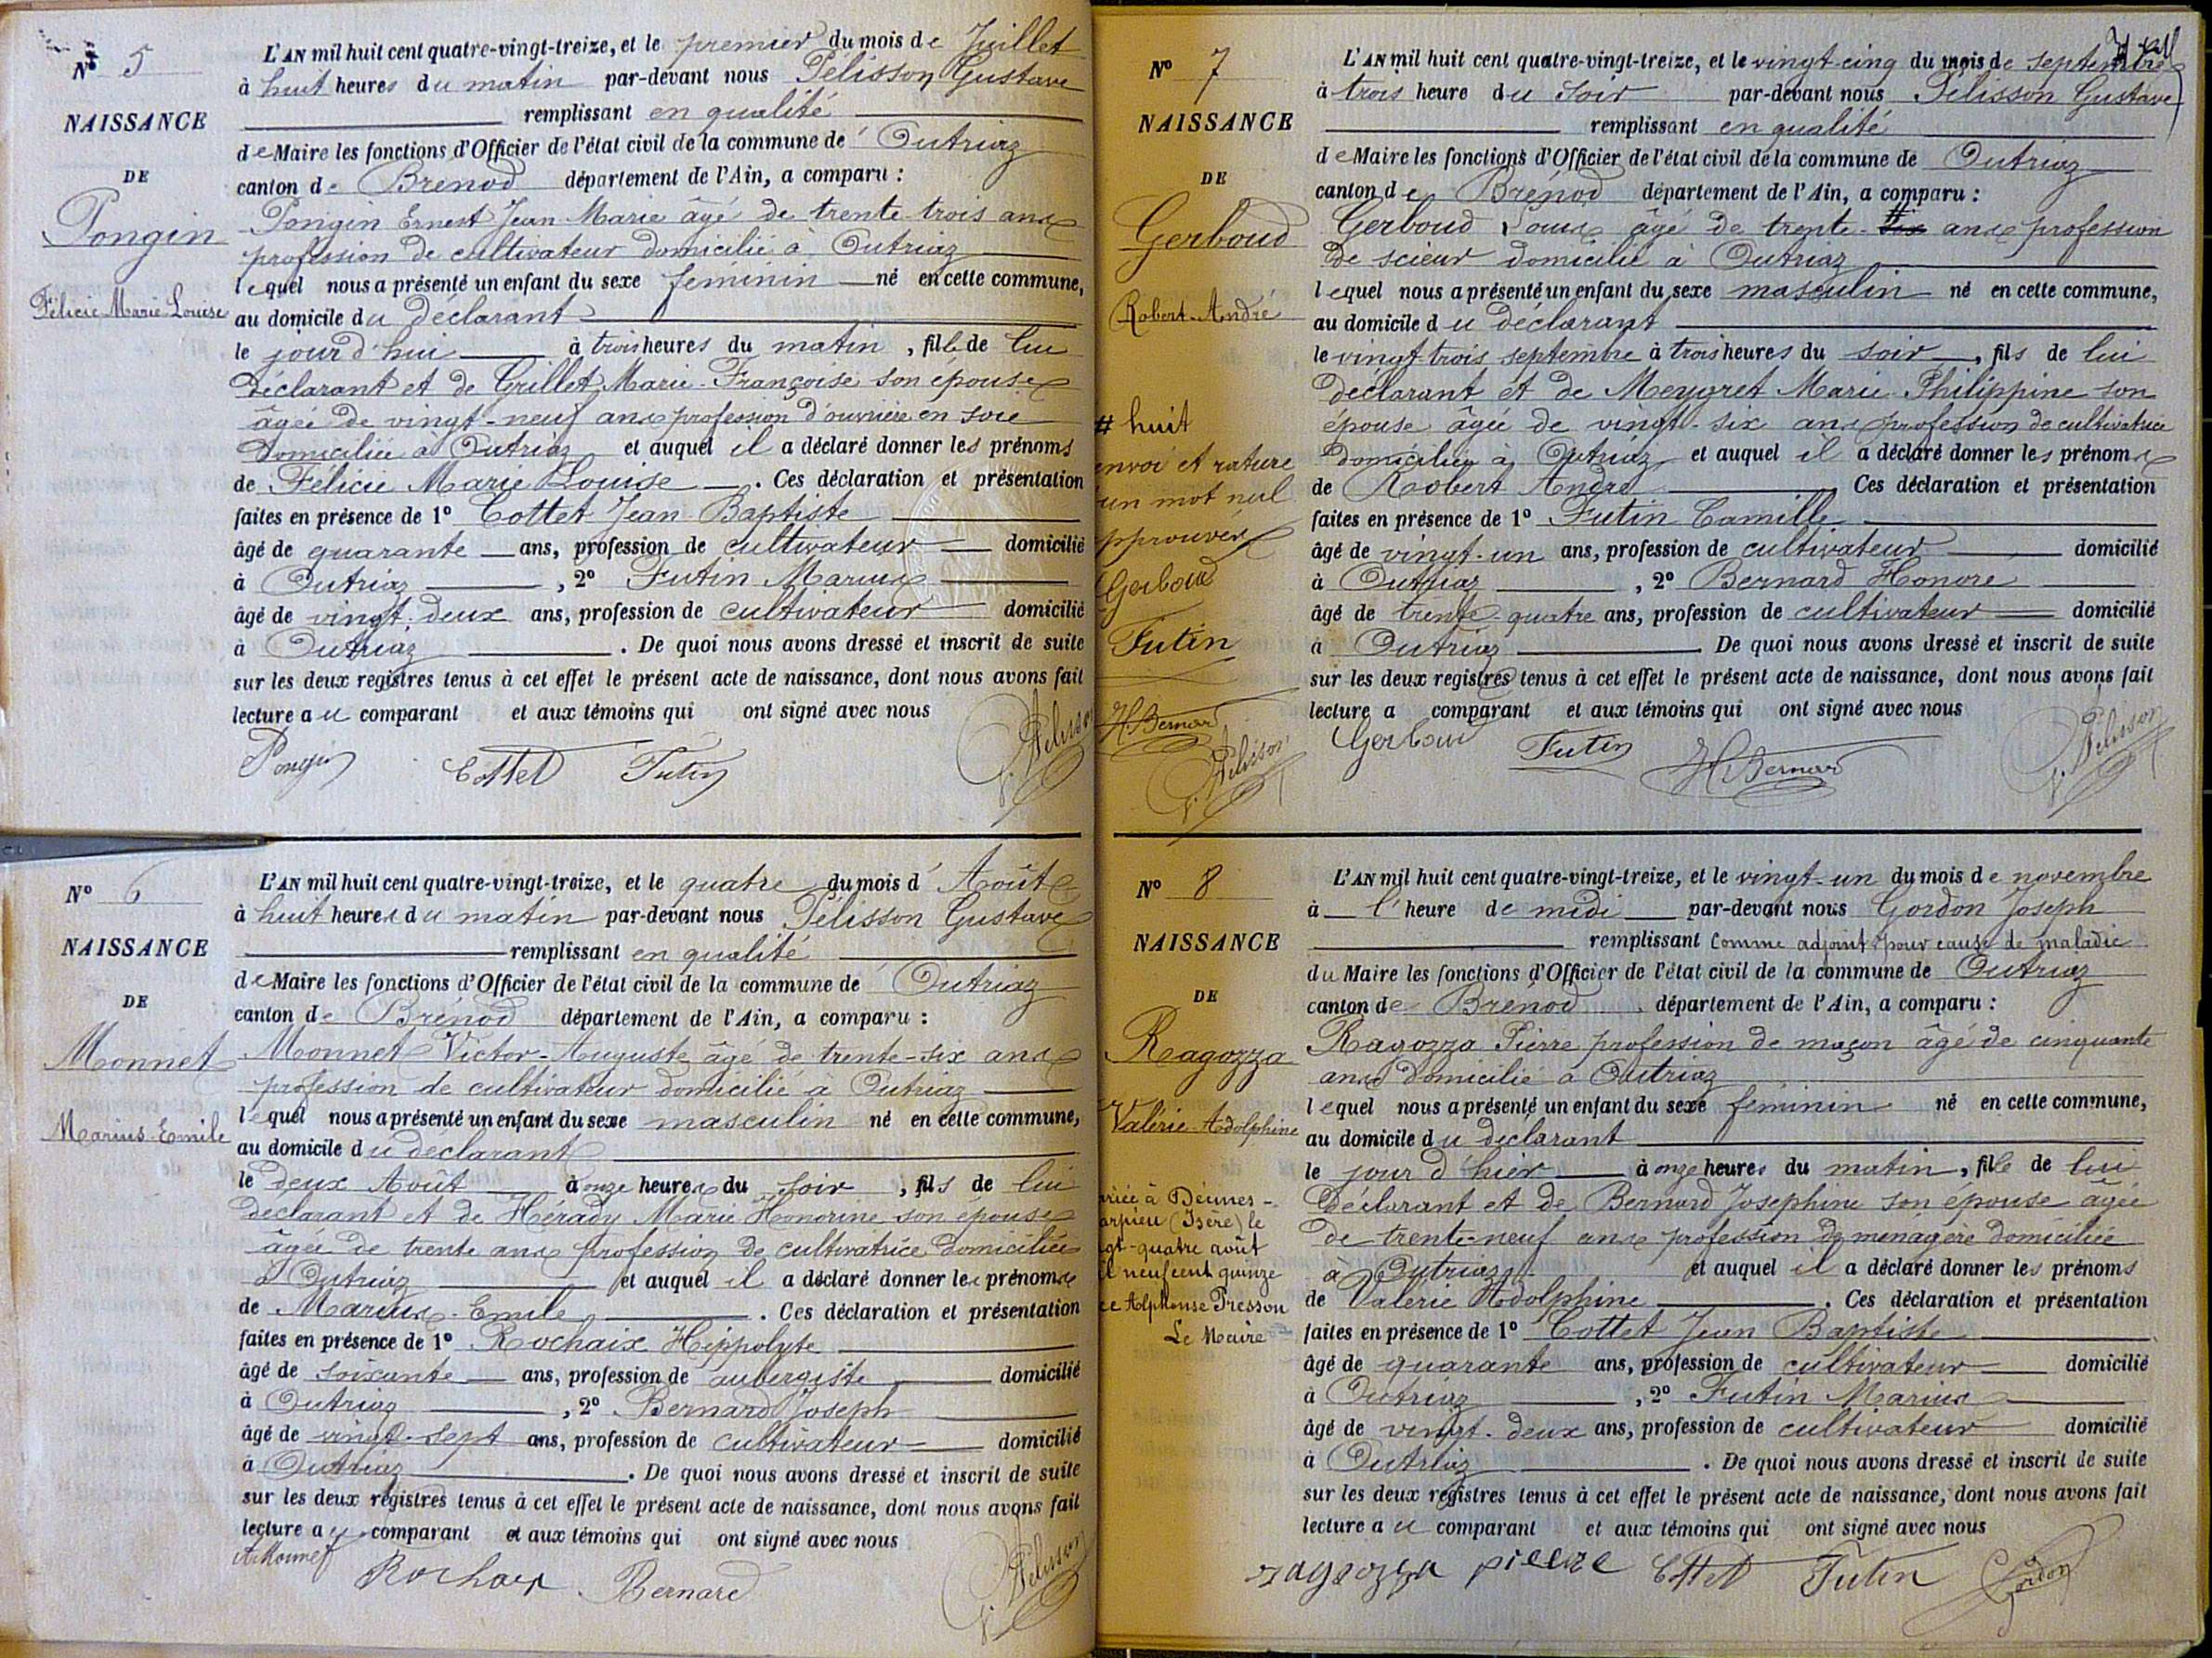 N° 5
NAISSANCE
DE
Pongin
Félicie Marie Louise
L'AN mil huit cent quatre-vingt-treize, et le premier du mois de Juillet
à huit heures du matin par-devant nous Pélisson Gustave
remplissant en qualité
de Maire les fonctions d'Officier de l'état civil de la commune de Outriaz
canton de Brénod département de l'Ain, a comparu :
Pongin Ernest Jean Marie âgé de trente trois ans
profession de cultivateur domicilié à Outriaz
lequel nous a présenté un enfant du sexe féminin né en cette commune,
au domicile du déclarant
le jour d'hui à trois heures du matin, fille de lui
déclarant et de Grillet Marie-Françoise son épouse
âgée de vingt-neuf ans profession d'ouvrière en soie
domiciliée à Outriaz et auquel il a déclaré donner les prénoms
de Félicie Marie Louise. Ces déclaration et présentation
faites en présence de 1° Cottet Jean Baptiste
âgé de quarante ans, profession de cultivateur domicilié
à Outriaz, 2° Futin Marius
âgé de vingt-deux ans, profession de cultivateur domicilié
à Outriaz. De quoi nous avons dressé et inscrit de suite
sur les deux registres tenus à cet effet le présent acte de naissance, dont nous avons fait
lecture au comparant et aux témoins qui ont signé avec nous
Pongin Cottet Futin Pélisson
N° 6
NAISSANCE
DE
Monnet
Marius-Emile
L'AN mil huit cent quatre-vingt-treize, et le quatre du mois d'Août
à huit heures du matin par-devant nous Pélisson Gustave
remplissant en qualité
de Maire les fonctions d'Officier de l'état civil de la commune de Outriaz
canton de Brénod département de l'Ain, a comparu :
Monnet Victor-Auguste âgé de trente-six ans
profession de cultivateur domicilié à Outriaz
lequel nous a présenté un enfant du sexe masculin né en cette commune,
au domicile du déclarant
le deux Août à onze heures du soir, fils de lui
déclarant et de Hérady Marie Honorine son épouse
âgée de trente ans profession de cultivatrice domiciliée
à Outriaz et auquel il a déclaré donner les prénoms
de Marius-Emile. Ces déclaration et présentation
faites en présence de 1° Rochaix Hippolyte
âgé de soixante ans, profession de aubergiste domicilié
à Outriaz, 2° Bernard Joseph
âgé de vingt-sept ans, profession de cultivateur domicilié
à Outriaz. De quoi nous avons dressé et inscrit de suite
sur les deux registres tenus à cet effet le présent acte de naissance, dont nous avons fait
lecture au comparant et aux témoins qui ont signé avec nous
Monnet Rochaix Bernard Pélisson
N° 7
NAISSANCE
DE
Gerboud
Robert-André
# huit
envoi et rature
un mot nul
pprouvés
Gerboud
Futin
H Bernard
Pélisson
L'AN mil huit cent quatre-vingt-treize, et le vingt-cinq du mois de septembre
à trois heure du soir par-devant nous Pélisson Gustave
remplissant en qualité
de Maire les fonctions d'Officier de l'état civil de la commune de Outriaz
canton de Brénod département de l'Ain, a comparu :
Gerboud Louis âgé de trente- # six ans profession
de scieur domicilié à Outriaz
lequel nous a présenté un enfant du sexe masculin né en cette commune,
au domicile du déclarant
le vingt-trois septembre à trois heures du soir, fils de lui
déclarant et de Meygret Marie Philippine son
épouse âgée de vingt-six ans profession de cultivatrice
domiciliée à Outriaz et auquel il a déclaré donner les prénoms
de Robert André Ces déclaration et présentation
faites en présence de 1° Futin Camille
âgé de vingt-un ans, profession de cultivateur domicilié
à Outriaz, 2° Bernard Honoré
âgé de trente-quatre ans, profession de cultivateur domicilié
à Outriaz. De quoi nous avons dressé et inscrit de suite
sur les deux registres tenus à cet effet le présent acte de naissance, dont nous avons fait
lecture a comparant et aux témoins qui ont signé avec nous
Gerboud Futin H Bernard Pélisson
N° 8
NAISSANCE
DE
Ragozza
Valérie-Adolphine
ariée à Décines-
arpieu (Isère) le
gt-quatre août
il neuf cent quinze
ec Alphonse Presson
Le Maire
L'AN mil huit cent quatre-vingt-treize, et le vingt-un du mois de novembre
à l'heure de midi par-devant nous Gordon Joseph
remplissant comme adjoint pour cause de maladie
du Maire les fonctions d'Officier de l'état civil de la commune de Outriaz
canton de Brénod département de l'Ain, a comparu :
Ragozza Pierre profession de maçon âgé de cinquante
ans domicilié à Outriaz
lequel nous a présenté un enfant du sexe féminin né en cette commune,
au domicile du déclarant
le jour d'hier à onze heures du matin, fille de lui
déclarant et de Bernard Josephine son épouse âgée
de trente-neuf ans profession de ménagère domiciliée
à Outriaz et auquel il a déclaré donner les prénoms
de Valérie Adolphine. Ces déclaration et présentation
faites en présence de 1° Cottet Jean Baptiste
âgé de quarante ans, profession de cultivateur domicilié
à Outriaz, 2° Futin Marius
âgé de vingt-deux ans, profession de cultivateur domicilié
à Outriaz. De quoi nous avons dressé et inscrit de suite
sur les deux registres tenus à cet effet le présent acte de naissance, dont nous avons fait
lecture au comparant et aux témoins qui ont signé avec nous
ragozza pierre Cottet Futin Gordon